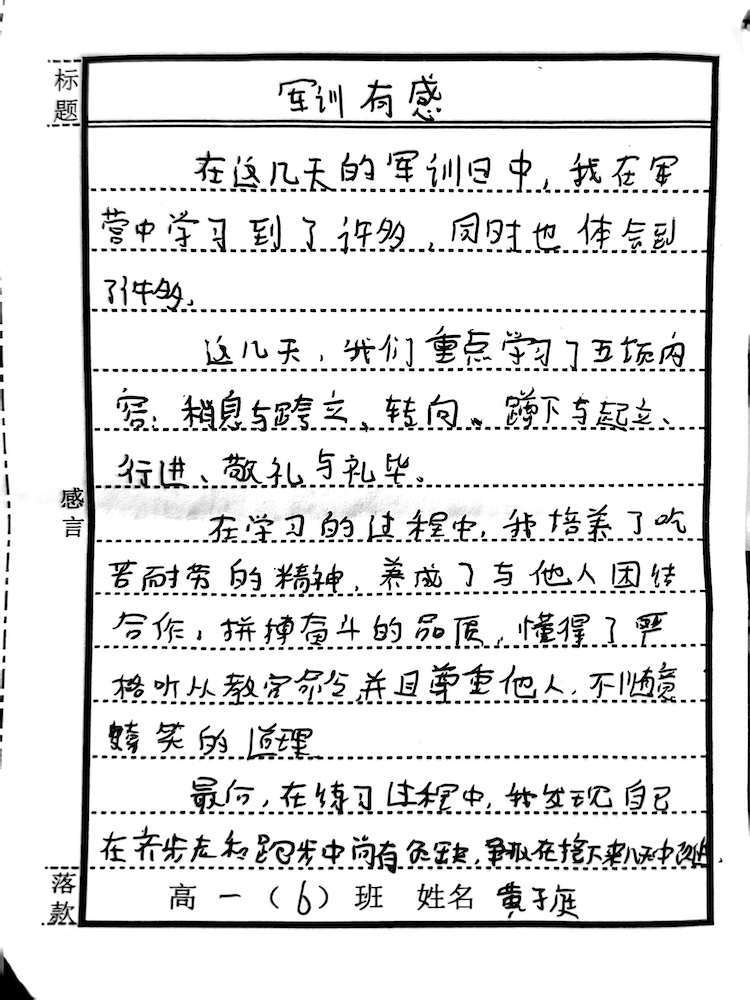 标题
军训有感
在这几天的军训日中，我在军
营中学习到了许多，同时也体会到
了许多。
这几天，我们重点学习了五项内
容：稍息与跨立、转向、蹲下与起立、
行进、敬礼与礼毕。
感言
在学习的过程中，我培养了吃
苦而耐劳的精神，养成了与他人团结
合作，拼搏奋斗的品质，懂得了严
格听从教官命令，并且尊重他人，不随意
嬉笑的道理
最后，在练习过程中，我发现自己
在齐步走和跑步中尚有欠缺，争取在接下来几天中改进。
落款
高一（6）班 姓名 黄子庭